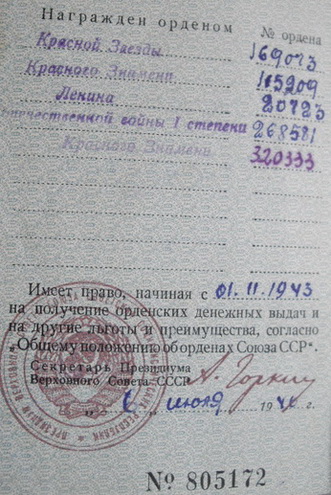 Награжден орденом
№ ордена
Красной Звезды 169073
Красного Знамени 115209
Ленина 20723
Отечественной войны I степени 268581
Красного Знамени 320333
Имеет право, начиная с 01.11.1943
на получение орденских денежных выдач и
на другие льготы и преимущества, согласно
«Общему положению об орденах Союза ССР».
Секретарь Президиума
Верховного Совета СССР А. Горкин
„ 6 " июля 194 г.
№ 805172